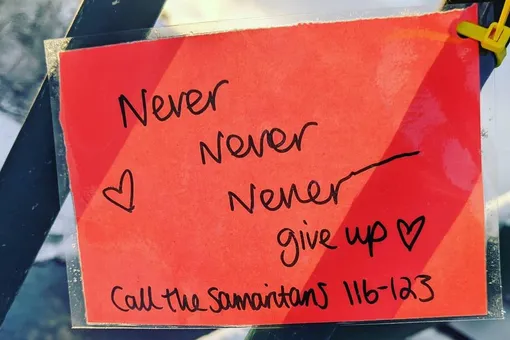 Never
Never
Never
give up
Call the Samaritans 116-123